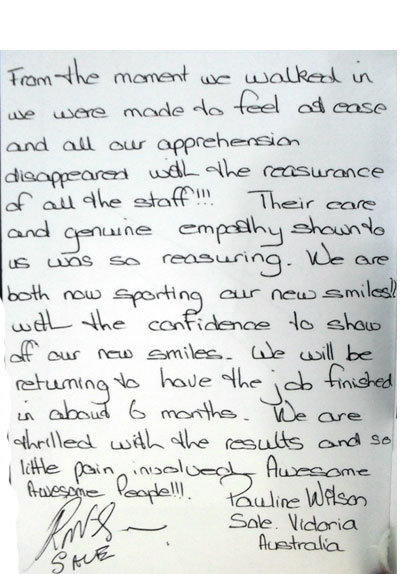 From the moment we walked in
we were made to feel at ease
and all our apprehension
disappeared with the reasurance
of all the staff!!! Their care
and genuine empathy shown to
us was so reasuring. We are
both now sporting our new smiles!!
with the confidence to show
off our new smiles. We will be
returning to have the job finished
in about 6 months. We are
thrilled with the results and so
little pain involved. Awesome
Awesome People!!!.
Pauline Wilson
Sale. Victoria
Australia
SALE